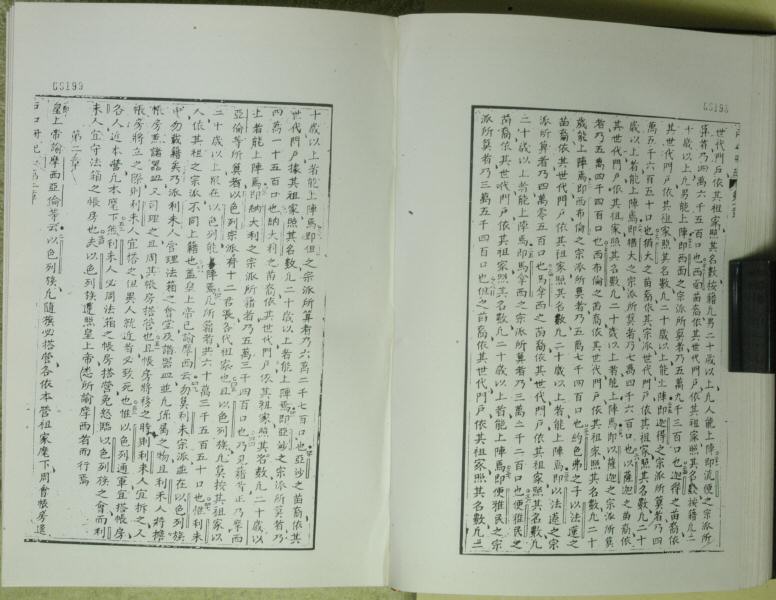 世代門戶依其祖家照其名數按籍凡男二十歲以上凡人能上陣馬即流便之宗派所
算者乃四萬六千五百口也西面苗裔依其世代門戶依其祖家照其名數按籍凡二
十歲以上凡男能上陣即西面之宗派所算者乃五萬九千三百口也迦得之苗裔依
其世代門戶依其祖家照其名數凡二十歲以上能上陣即迦得之宗派所算者乃四
萬五千六百五十口也猶大之苗裔依其宗派世代門戶依其祖家照其名數凡二十
歲以上者能上陣馬即猶大之宗派所算者乃七萬四千六百口也以薩迦之苗裔依
其世代門戶依其祖家照其名數凡二十歲以上者能上陣馬即以薩迦之宗派所算
者乃五萬四千四百口也西布倫之苗裔依其世代門戶依其祖家照其名數凡二十
歲能上陣馬即西布倫之宗派所算者乃五萬七千四百口也約色弗之子以法連之
苗裔依其世代門戶依其祖家照其名數凡二十歲以上者能上陣馬即以法連之宗
派所算者乃四萬零五百口也馬拿西之苗裔依其世代門戶依其祖家照其名數凡
二十歲以上若能上陣馬即馬拿西之宗派所算者乃三萬二千二百口也便雅民之
苗裔依其世代門戶依其祖家照其名數凡二十歲以上若能上陣馬即便雅民之宗
派所算者乃三萬五千四百口也但之苗裔依其世代門戶依其祖家照其名數凡二
十歲以上者能上陣馬即但之宗派所算者乃六萬二千七百口也亞沙之苗裔依其
世代門戶據其祖家照其名數凡二十歲以上若能上陣馬即亞沙之宗派所算者乃
四萬一千五百口也納大利之苗裔依其世代門戶依其祖家照其名數凡二十歲以
上若能上陣馬即納大利之宗派所籍者乃五萬三千四百口也乃見籍者正乃摩西
亞倫等所算者以色列宗派有十二君長各代祖家也且以色列族凡莫按其祖家以
二十歲以上在以色列能上陣焉凡所籍者共六十萬三千五百五十口也惟利未
人依其祖之宗派不同上籍也蓋皇上帝已諭摩西云勿算利未宗派並在以色列族
中勿載籍矣乃派利未人管理法箱之會堂及諸器皿並凡係萬之物且利未人將擔
帳房焉諸器皿又司理之且周其帳房搭營也且帳房將移之時則利未人宜拆之又
帳房將立之際則利未人宜搭之但異人就近者必致死也惟以色列通軍宜搭帳房
各人近本營凡本麾下然利未人必周法箱之帳房搭營免怒臨以色列族之會而利
未人宜守法箱之帳房也夫以色列族遵照皇上帝悉所諭摩西者而行焉
第二章
皇上帝諭摩西亞倫等云以色列族凡隨旗必搭營各依本營祖家麾下周會帳房遠